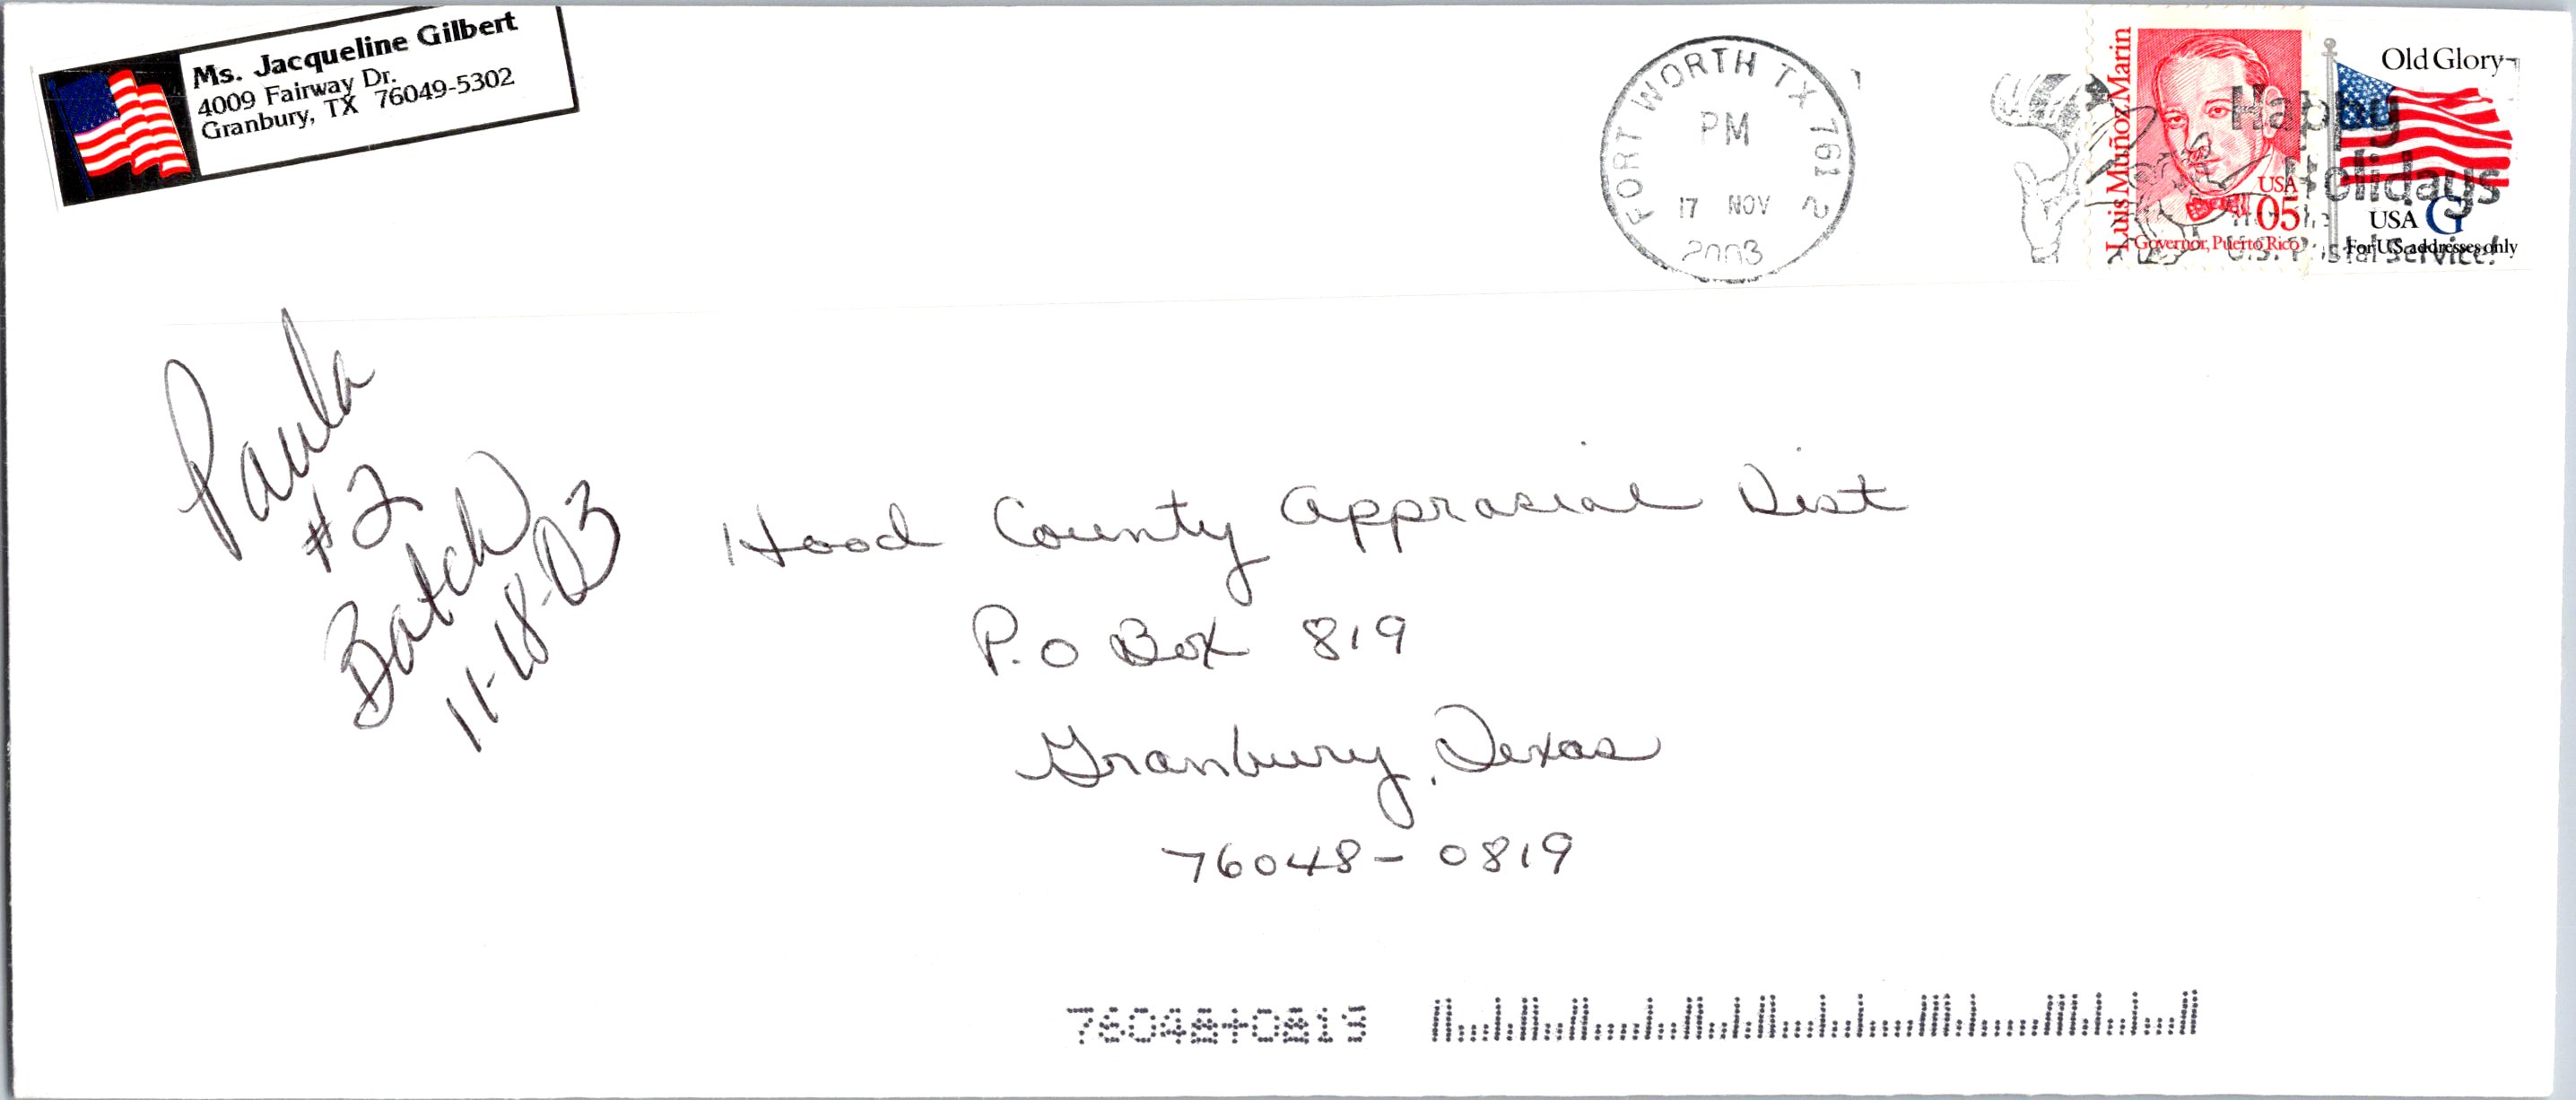 Ms. Jacqueline Gilbert
4009 Fairway Dr.
Granbury, TX 76049-5302
FORT WORTH TX 761 2
PM
17 NOV
2003
Luis Muñoz Marin
USA
05
Governor, Puerto Rico
Old Glory
USA G
For U.S. addresses only
Happy
Holidays
U.S. Postal Service!
Paula
#2
Batch
11-18-03
Hood County Apprasial Dist
P.O Box 819
Granbury, Texas
76048-0819
76048+0819